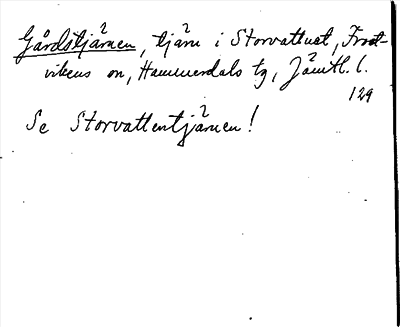 Gårdstjärnen, tjärn i Storvattnet, Frost-
vikens sn, Hammerdals tg, Jämtl. l.
129
Se Storvattentjärnen!